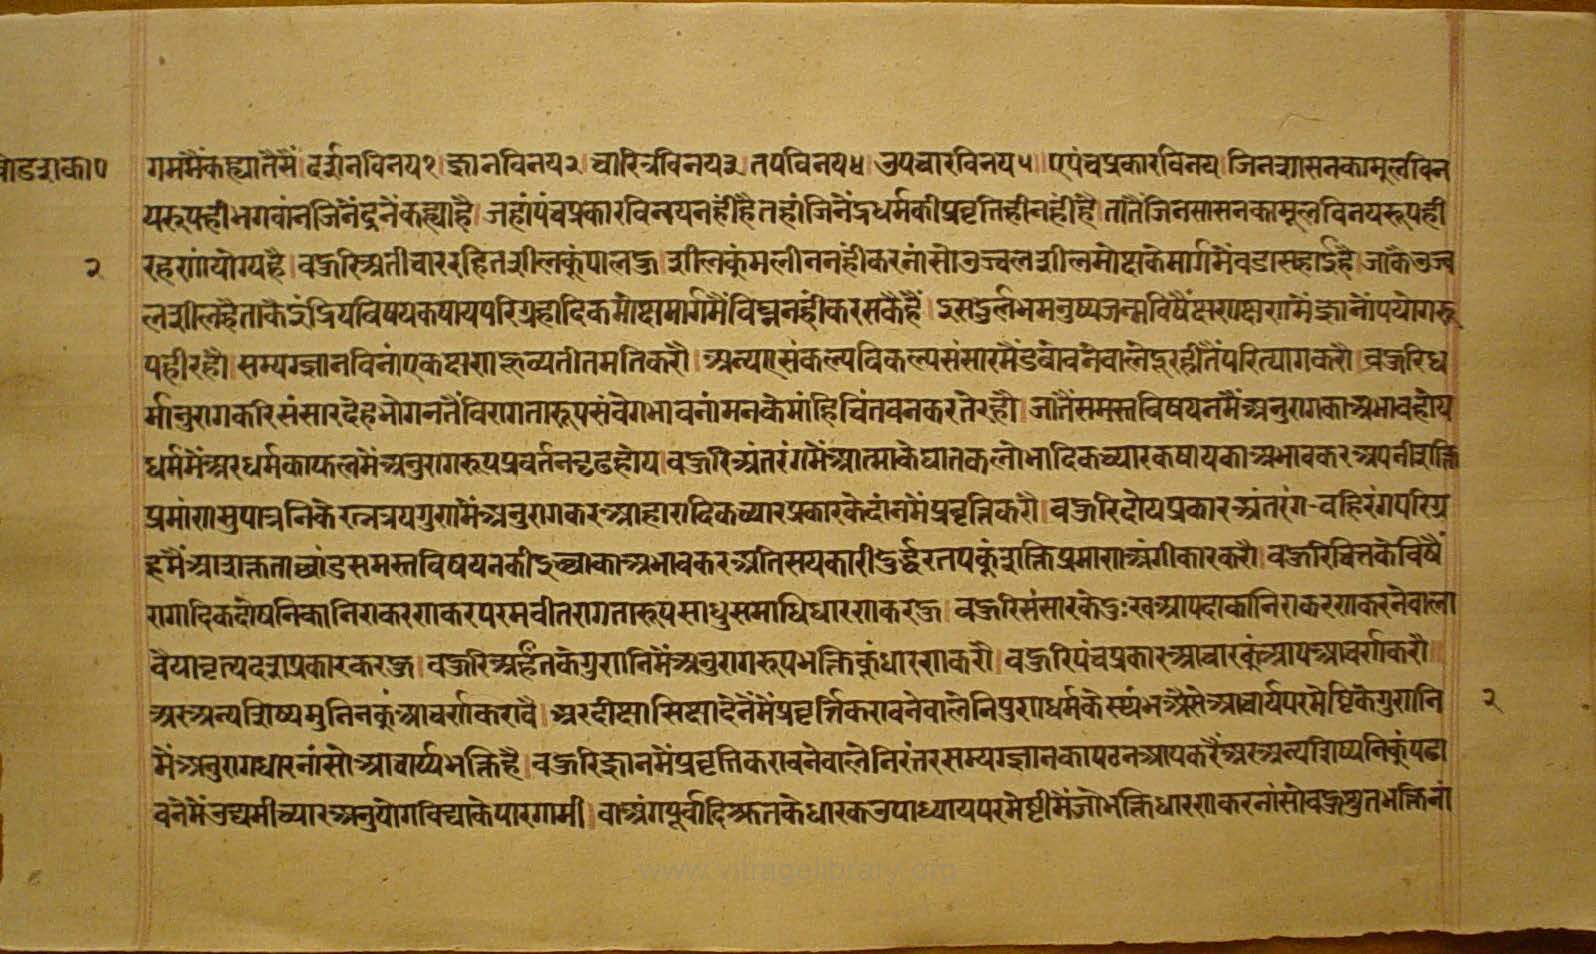 षोडशका०
गममैंकह्यातैसैं।दर्शनविनय१ज्ञानविनय२चारित्रविनय३तपविनय४उपचारविनय५।एपंचप्रकारविनय जिनशासनकामूलविन
यरूपहीभगवांनजिनेंद्रनेंकह्याहै।जहांपंचप्रकारविनयनहींहैतहांजिनेंद्रधर्मकीप्रवृत्तिहीनहींहै।तातैंजिनसासनकामूलविनयरूपही
२
रहणांयोग्यहै।वहुरिअतीचाररहितशीलकुंपालहु।शीलकुंमलीननहींकरनांसोउज्वलशीलमोक्षकेमार्गमैंवडासहाईहै।जाकैउज्व
लशीलहैताकैइंद्रियविषयकषायपरिग्रहादिकमोक्षमार्गमैंविघ्ननहींकरसकैहैं।इसदुर्लभमनुष्यजन्मविषैंक्षणक्षणमैंज्ञानोपयोगरू
पहीरहौ।सम्यग्ज्ञानविनांएकक्षणहूव्यतीतमतिकरौ।अन्यएसंकल्पविकल्पसंसारमैंडवोवनेवालेदूरहीतैंपरित्यागकरौ।वहुरिध
र्मानुरागकरिसंसारदेहभोगनतैंविरागतारूपसंवेगभावनांमनकेमांहिचिंतवनकरतेरहौ।जातैंसमस्तविषयनमैंअनुरागकाअभावहोय
धर्ममेंअरधर्मकाफलमेंअनुरागरूपप्रवर्तनदृढहोय।वहुरिअंतरंगमेंआत्माकेघातकलोभादिकच्यारकषायकाअभावकरअपनीशक्ति
प्रमांणसुपात्रनिकेरत्नत्रयगुणमेंअनुरागकरआहारादिकच्यारप्रकारकेदांनमेंप्रवृत्तिकरौ।वहुरिदोयप्रकारअंतरंग-वहिरंगपरिग्र
हमैंआशक्तताछांडसमस्तविषयनकीइच्छाकाअभावकरअतिसयकारीदुर्द्धरतपकुंशक्तिप्रमाणअंगीकारकरौ।वहुरिचितकेविषैं
रागादिकदोषनिकानिराकरणकरपरमवीतरागतारूपसाधुसमाधिधारणकरहु।वहुरिसंसारकेदुःखआपदाकानिराकरणकरनेवाला
वैयावृत्यदशप्रकारकरहु।वहुरिअर्हंतकेगुणनिमेंअनुरागरूपभक्तिकूंधारणकरौ।वहुरिपंचप्रकारआचारकुंआपआचर्णकरौ
अरअन्यशिष्यमुनिनकुंआचर्णकरावै।अरदीक्षासिक्षादेनेंमेंप्रवृर्त्तिकरावनेवालेनिपुणधर्मकेस्थंभऐसेआचार्यपरमेष्टिकेगुणनि
२
मेंअनुरागधारनांसोआचार्य्यभक्तिहै।वहुरिज्ञानमेंप्रवृत्तिकरावनेवालेनिरंतरसम्यग्ज्ञानकापठनआपकरैंअरअन्यशिष्यनिकुंपढा
वनेमेंउद्यमीच्यारअनुयोगविद्याकेपारगामी।वाअंगपूर्वादिश्रुतकेधारकउपाध्यायपरमेष्टीमेंजोभक्तिधारणकरनांसोवहुश्रुतभक्तिनां
www.vitragelibrary.org